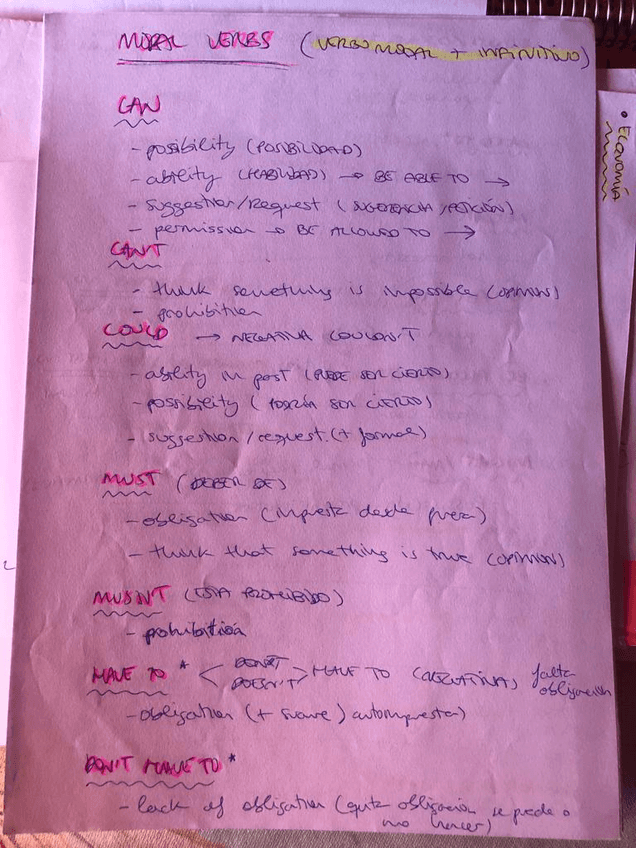 MODAL VERBS (VERBO MODAL + INFINITIVO)
• Economía
CAN
- posibility (POSIBILIDAD)
- ability (HABILIDAD) → BE ABLE TO →
- suggestion/request (SUGERENCIA/PETICIÓN)
- permission → BE ALLOWED TO →
CAN'T
- think something is impossible (OPINION)
- prohibition
COULD → NEGATIVA COULDN'T
- ability in past (PUEDE SER CIERTO)
- possibility (PODRÍA SER CIERTO)
- suggestion/request. (+ formal)
MUST (DEBER DE)
- obligation (impuesta desde fuera)
- think that something is true (OPINION)
MUSN'T (ESTA PROHIBIDO)
- prohibition
HAVE TO * < DON'T DOESN'T > HAVE TO (NEGATIVAS) falta obligación
- obligation (+ suave) autoimpuesta)
DON'T HAVE TO *
- lack of obligation (quita obligación se puede o
no hacer)